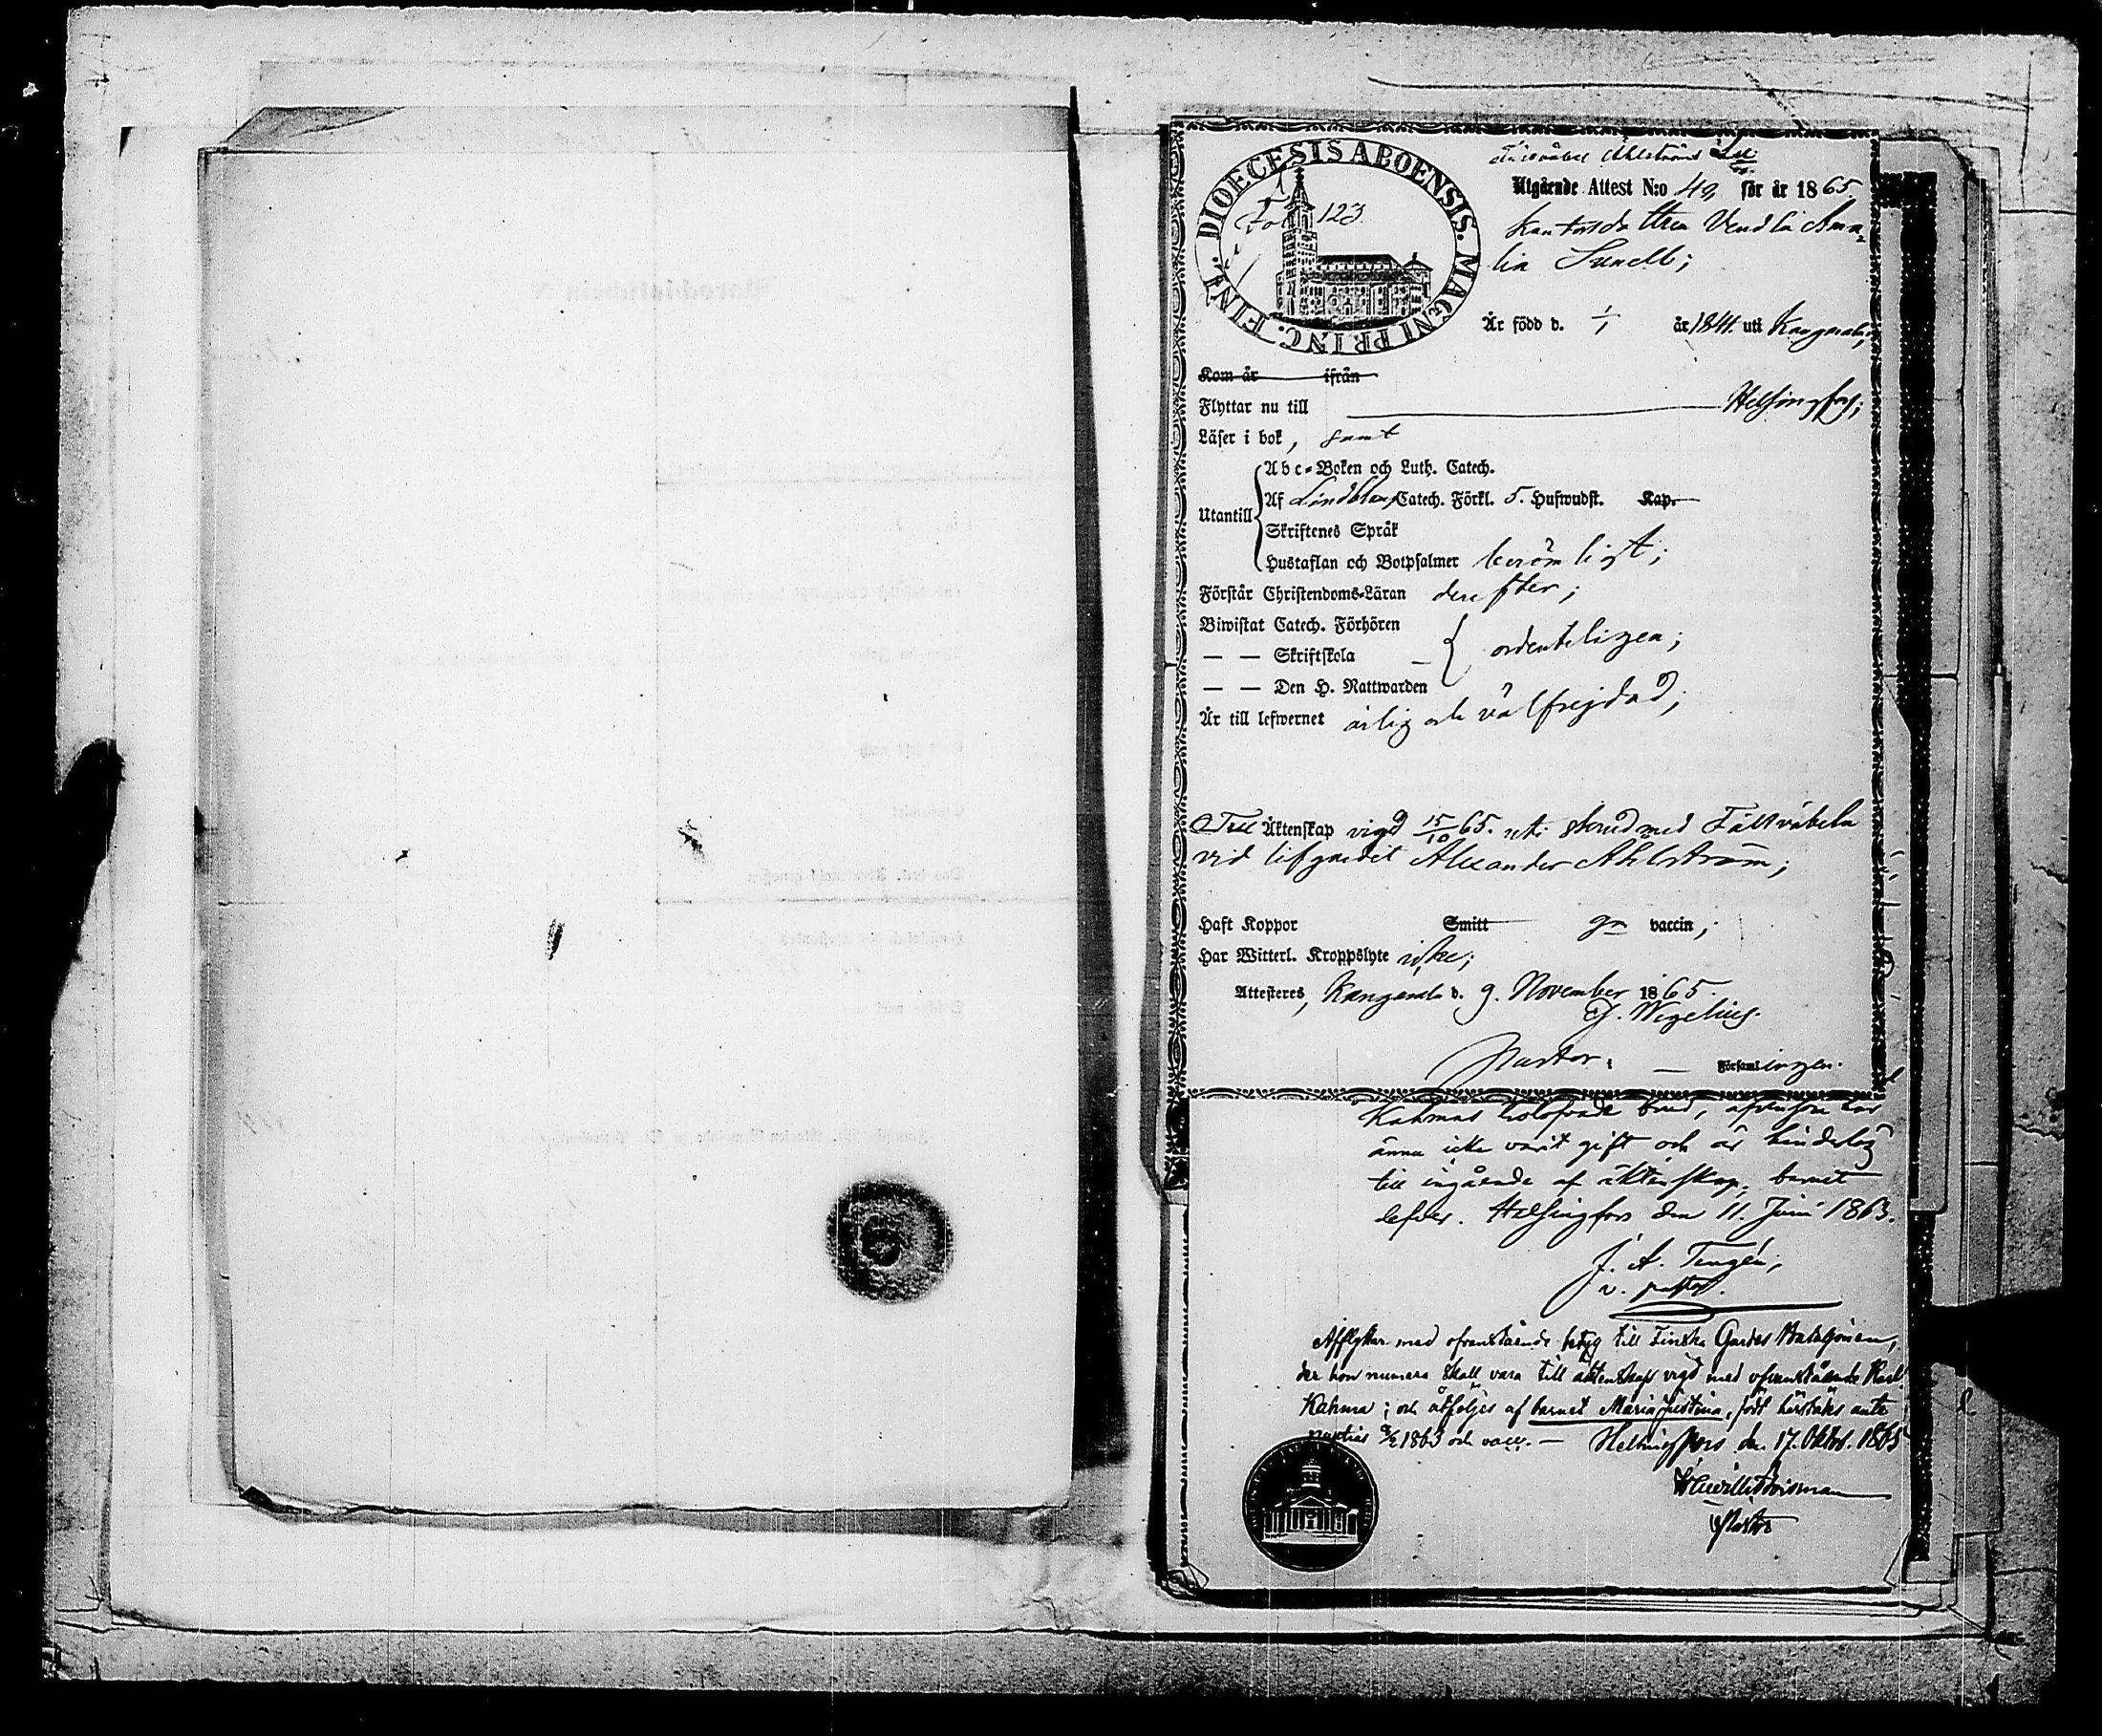 DIOECESIS ABOENSIS. MAGNI PRINC. FINL.
Fol. 123.
Fältväbel Ahlströms
Utgående Attest N:o 49, för år 1865.
Kantorsdottren Vendla Ama-
lia Sunell;
Är född d. 1/1 år 1841. uti Kangasala;
Kom år ifrån
Flyttar nu till Helsingfors;
Läser i bok, samt
Utantill
Abc-Boken och Luth. Catech.
Af Lindblom Catech. Förkl. 5. Hufwudst. Kap.
Skriftenes Språk
Hustaflan och Botpsalmer berömligt;
Förstår Christendoms-Läran derefter;
Biwistat Catech. Förhören
— — Skriftskola ordenteligen;
— — Den H. Nattwarden
Är till lefwernet ärlig och välfrejdad;
Till Äktenskap vigd 15/10 65. uti stånd med Fältväbeln
vid lifgardet Alexander Ahlström;
Haft Koppor Smitt vaccin;
Har Witterl. Kroppslyte icke;
Attesteres, Kangasala d. 9. November 1865.
Wegelius.
Pastor. Församlingen.
Kahmas trolofvade brud,
ännu icke varit gift och är hinderlös
till ingående af äktenskap, barnet
lefver. Helsingfors den 11. Juni 1863.
J. A. Tengén,
v. pastor.
Afflyttar med ofvanstående betyg till Finska Gardes Bataljonen,
der hon numera skall vara till äktenskap vigd med ofvanstående Karl
Kahma; och åtföljes af barnet Maria Justina, född härstädes ante
nuptias 1863 och vacc. — Helsingfors den 17. Oktob. 1865
Pastor